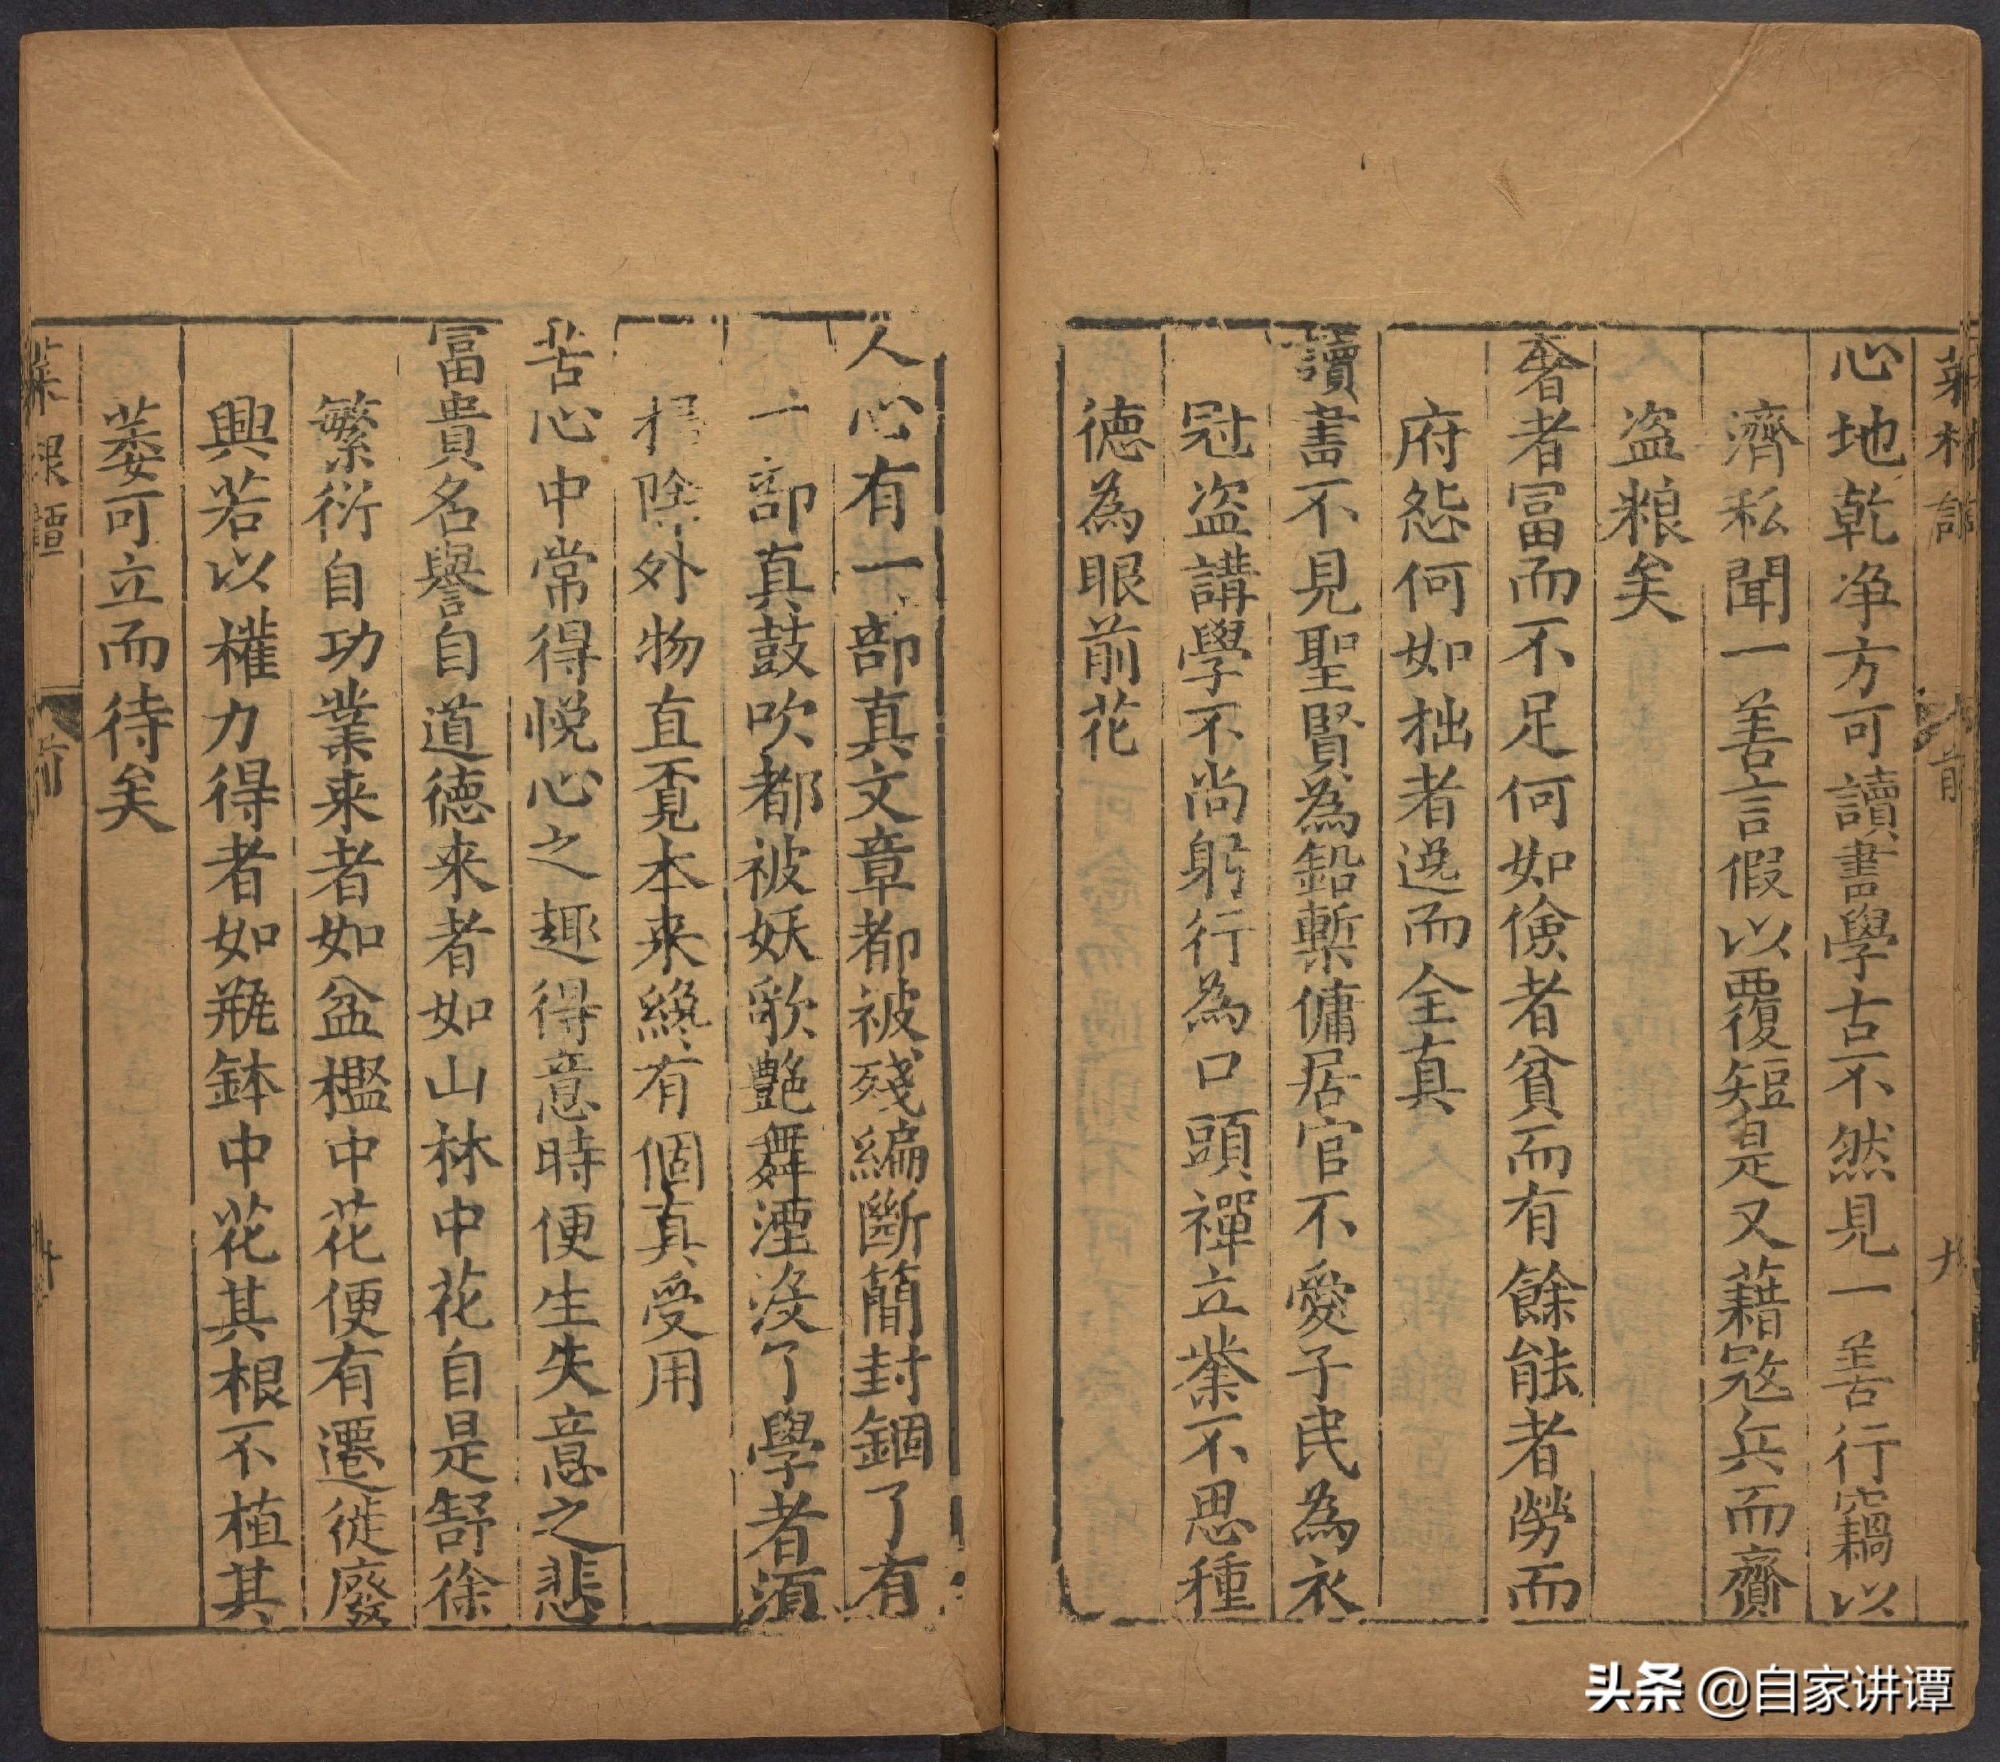 菜根譚
前
九
心地乾净方可讀書學古不然見一善行竊以
濟私聞一善言假以覆短是又藉寇兵而齎
盗粮矣
奢者富而不足何如儉者貧而有餘能者勞而
府怨何如拙者逸而全真
讀書不見聖賢為鉛槧傭居官不愛子民為衣
冠盗講學不尚躬行為口頭禪立業不思種
德為眼前花
人心有一部真文章都被殘編斷簡封錮了有
一部真鼓吹都被妖歌艶舞湮没了學者須
掃除外物直覔本来纔有個真受用
苦心中常得悦心之趣得意時便生失意之悲
富貴名譽自道德来者如山林中花自是舒徐
繁衍自功業来者如盆檻中花便有遷徙廢
興若以權力得者如瓶鉢中花其根不植其
萎可立而待矣
菜根譚
前
头条 @自家讲谭